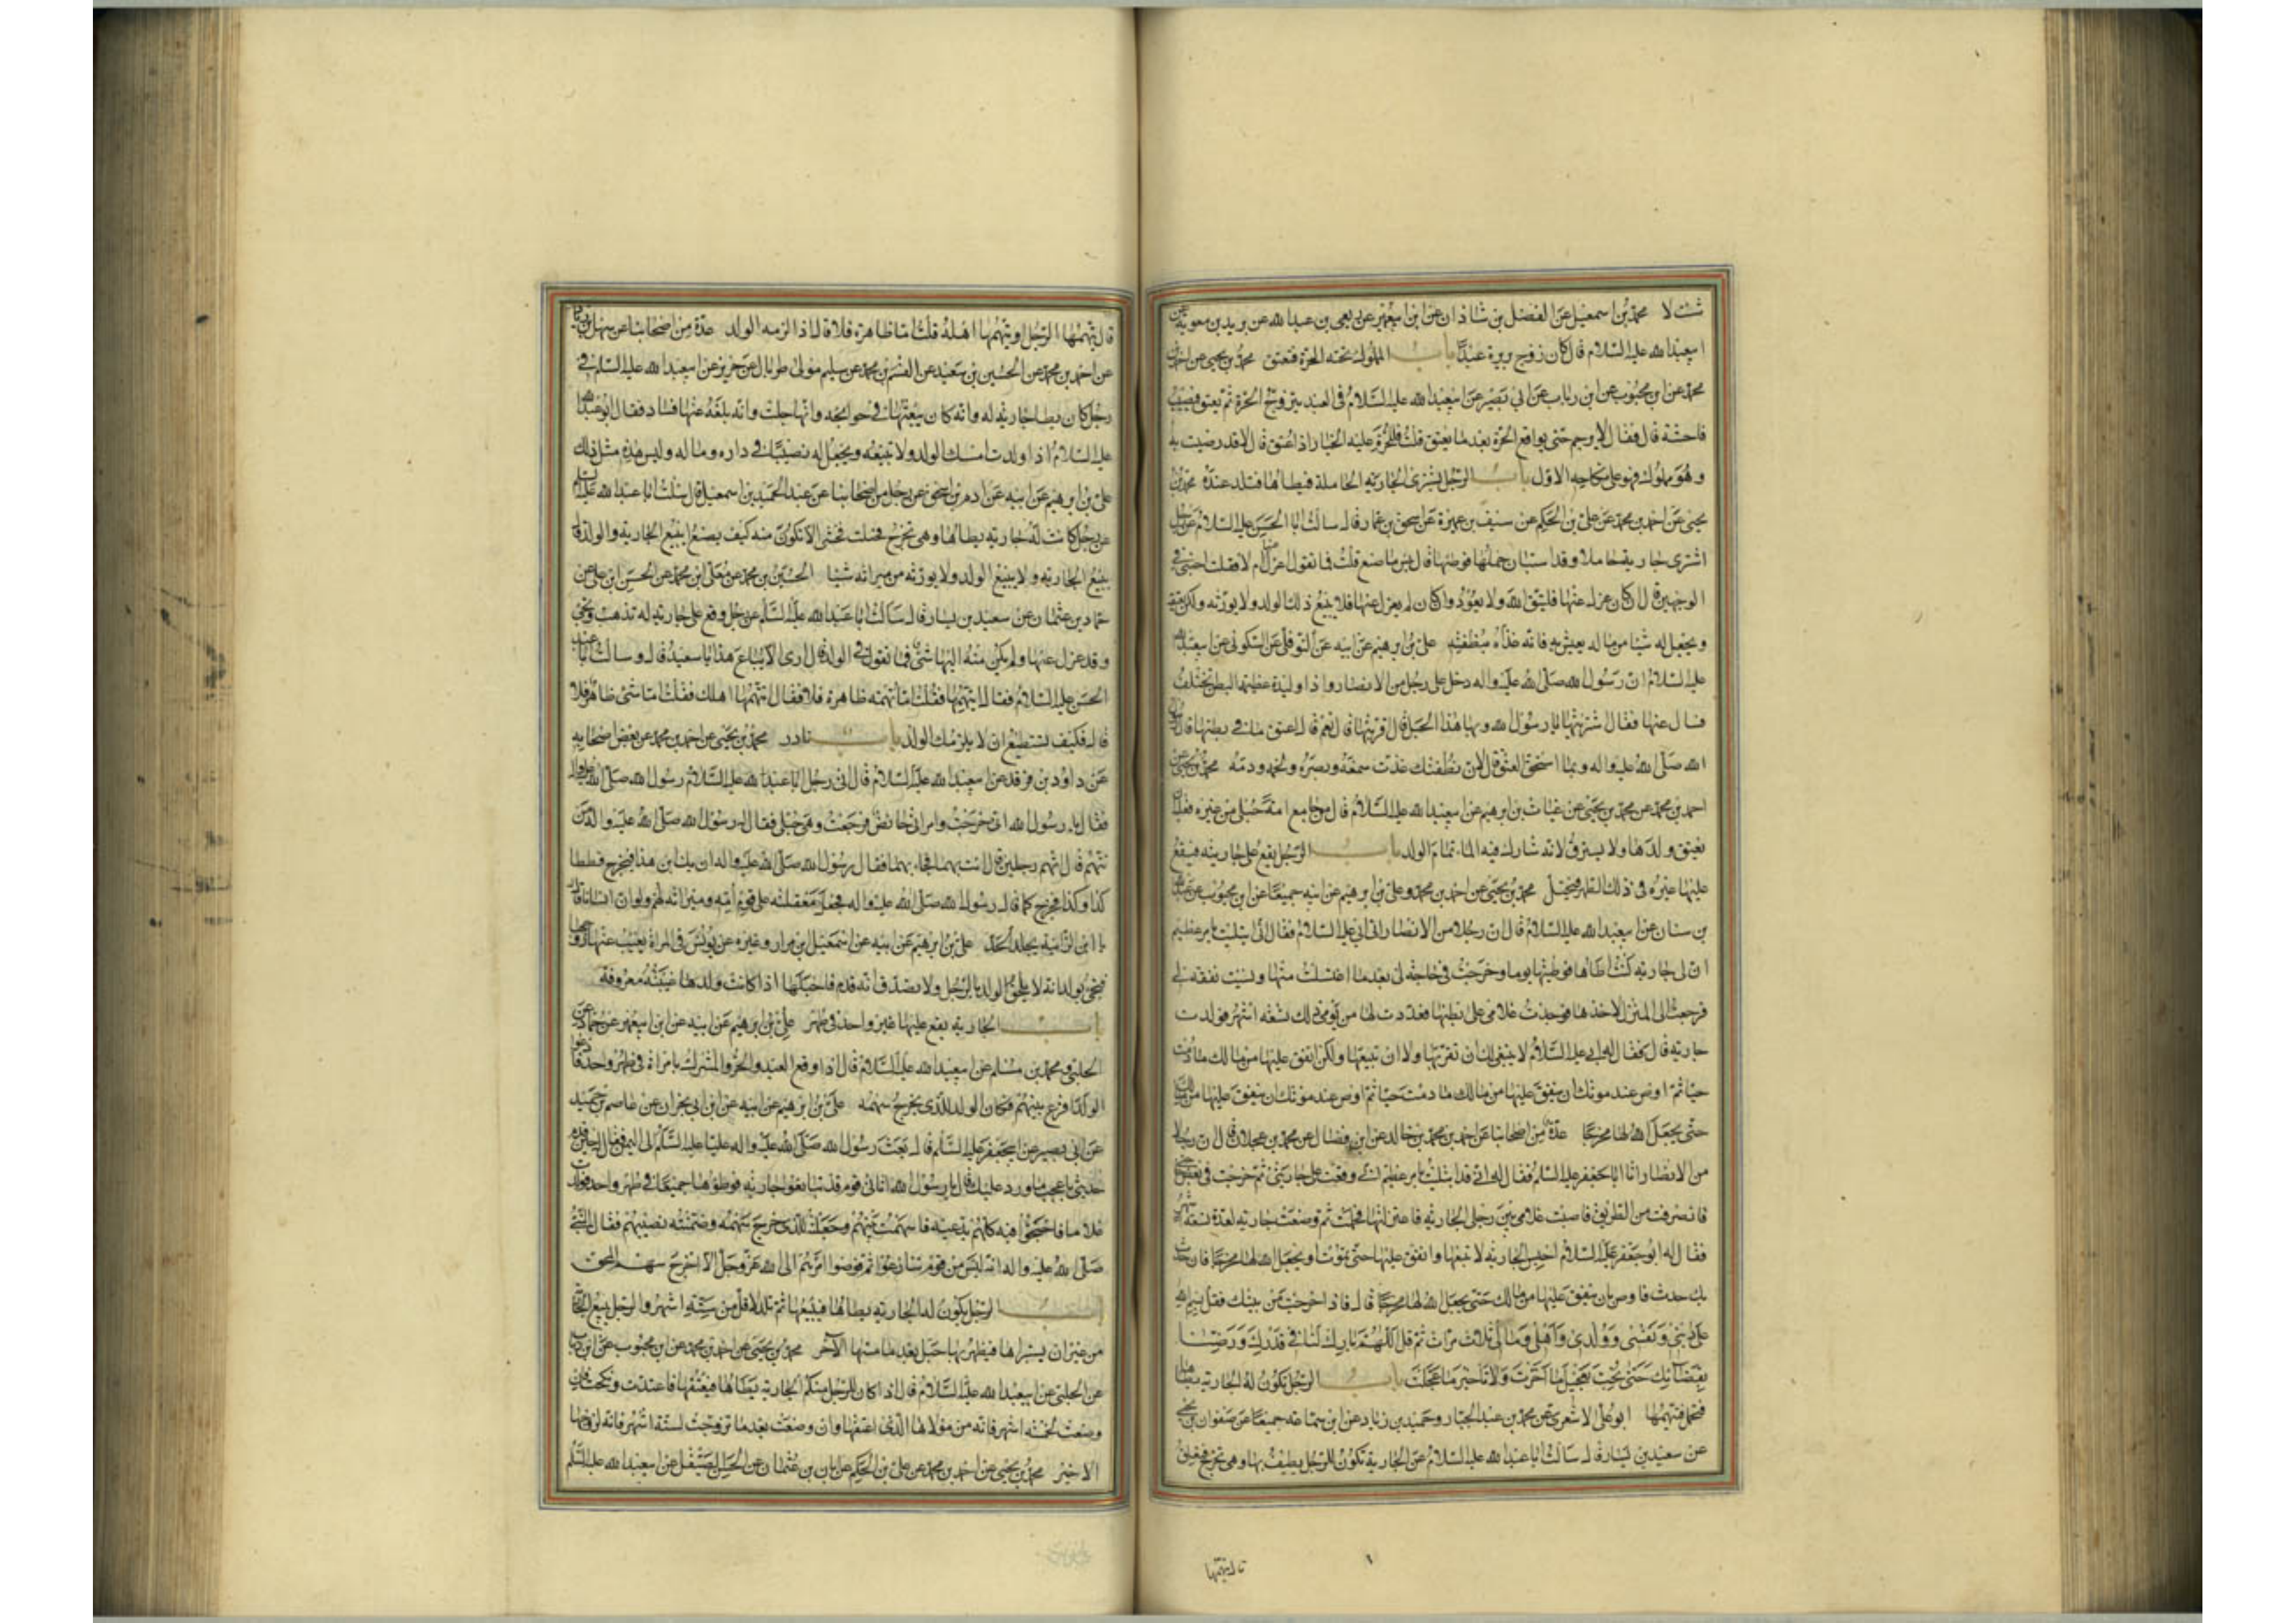 شئت لا محمد بن اسمعيل عن الفضل بن شاذان عن ابن ابي عمير عن ربعي بن عبد الله عن بريد بن معوية عن
ابي عبد الله عليه السلام قال كان زوج بريرة عبدا باب المملوك تحته الحرة فتعتق محمد بن يحيى عن احمد بن
محمد عن ابن محبوب عن ابن رياب عن ابي بصير عن ابي عبد الله عليه السلام في العبد يتزوج الحرة ثم يعتق فيصيب
فاحشة قال فقال لا يرجم حتى يواقع الحرة بعد ما يعتق قلت فللحرة عليه الخيار اذا اعتق قال لا قد رضيت به
وهو مملوك فهو على نكاحه الاول باب الرجل يشتري الجارية الحاملة فيطاها فتلد عنده محمد بن
يحيى عن احمد بن محمد عن علي بن الحكم عن سيف بن عميرة عن اسحق بن عمار قال سالت ابا الحسن عليه السلام عن رجل
اشترى جارية حاملا وقد استبان حملها فوطئها قال بئس ما صنع قلت فما تقول فيه قال اعزل عنها ام لا فقلت اجبني في
الوجهين قال ان كان عزل عنها فليتق الله ولا يعود وان كان لم يعزل عنها فلا يبيع ذلك الولد ولا يورثه ولكن يعتقه
ويجعل له شيئا من ماله يعيش به فانه غذاه بنطفته علي بن ابرهيم عن ابيه عن النوفلي عن السكوني عن ابي عبد الله
عليه السلام ان رسول الله صلى الله عليه واله دخل على رجل من الانصار واذا وليدة عظيمة البطن تختلف
فسال عنها فقال اشتريتها يا رسول الله وبها هذا الحبل قال اقربتها قال نعم قال اعتق ما في بطنها قال يا رسول
الله صلى الله عليه واله وبما استحق العتق قال لان نطفتك غذت سمعه وبصره ولحمه ودمه محمد بن يحيى عن
احمد بن محمد عن محمد بن يحيى عن غياث بن ابرهيم عن ابي عبد الله عليه السلام قال من جامع امة حبلى من غيره فعليه ان
يعتق ولدها ولا يسترق لانه شارك فيه الماء تمام الولد باب الرجل يقع على جاريته فيقع
عليها غيره في ذلك الطهر فتحبل محمد بن يحيى عن احمد بن محمد وعلي بن ابرهيم عن ابيه جميعا عن ابن محبوب عن عبد الله
بن سنان عن ابي عبد الله عليه السلام قال ان رجلا من الانصار اتى ابي عليه السلام فقال اني ابتليت بامر عظيم
ان لي جارية كنت اطاها فوطئتها يوما وخرجت في حاجة لي بعد ما اغتسلت منها ونسيت نفقة لي
فرجعت الى المنزل لاخذها فوجدت غلامي على بطنها فعددت لها من يومي ذلك تسعة اشهر فولدت
جارية قال فقال له ابي عليه السلام لا ينبغي لك ان تقربها ولا ان تبيعها ولكن انفق عليها من مالك ما دمت
حيا ثم اوص عند موتك ان ينفق عليها من مالك ما دمت حيا ثم اوص عند موتك ان ينفق عليها من مالك
حتى يجعل الله لها مخرجا عدة من اصحابنا عن احمد بن محمد بن خالد عن ابن فضال عن محمد بن عجلان قال ان رجلا
من الانصار اتى ابا جعفر عليه السلام فقال له اني قد ابتليت بامر عظيم اني وقعت على جاريتي ثم خرجت في بعض حوائجي
فانصرفت من الطريق فاصبت غلامي بين رجلي الجارية فاعتزلتها فحملت ثم وضعت جارية لعدة تسعة اشهر
فقال له ابو جعفر عليه السلام احبس الجارية لا تبعها وانفق عليها حتى تموت او يجعل الله لها مخرجا فان حدث
بك حدث فاوص بان ينفق عليها من مالك حتى يجعل الله لها مخرجا قال فاذا خرجت من بيتك فقل بسم الله
على ديني ونفسي وولدي واهلي ومالي ثلاث مرات ثم قل اللهم بارك لنا في قدرك ورضنا
بقضائك حتى لا نحب تعجيل ما اخرت ولا تاخير ما عجلت باب الرجل تكون له الجارية يطاها
فتحبل فيتهمها ابو علي الاشعري عن محمد بن عبد الجبار وحميد بن زياد عن ابن سماعة جميعا عن صفوان بن يحيى
عن سعيد بن يسار قال سالت ابا عبد الله عليه السلام عن الجارية تكون للرجل يطيف بها وهي تخرج فتعلق
قال يتهمها
قال يتهمها الرجل او يتهمها اهله قلت اما ظاهرة فلا قال اذا لزمه الولد عدة من اصحابنا عن سهل بن زياد
عن احمد بن محمد عن الحسين بن سعيد عن القسم بن محمد عن سليم مولى طربال عن حريز عن ابي عبد الله عليه السلام في
رجل كان يطا جارية له وانه كان يبعثها في حوائجه وانها حبلت وانه بلغه عنها فساد فقال ابو عبد الله
عليه السلام اذا ولدت امسك الولد ولا تبيعه ويجعل له نصيبا في داره وماله وليس هذه مثل تلك
علي بن ابرهيم عن ابيه عن ادم بن اسحق عن رجل من اصحابنا عن عبد الحميد بن اسمعيل قال سالت ابا عبد الله عليه السلام
عن رجل كانت له جارية يطاها وهي تخرج فحبلت فخشي الا تكون منه كيف يصنع ايبيع الجارية والولد قال
يبيع الجارية ولا يبيع الولد ولا يورثه من ميراثه شيئا الحسين بن محمد عن معلى بن محمد عن الحسن بن علي عن
حماد بن عثمان عن سعيد بن يسار قال سالت ابا عبد الله عليه السلام عن رجل وقع على جارية له تذهب وتجئ
وقد عزل عنها ولم يكن منه اليها شئ فما تقول في الولد قال ارى الا يباع هذا يا سعيد قال وسالت ابا
الحسن عليه السلام فقال ايتهمها فقلت اما تهمة ظاهرة فلا فقال ايتهمها اهلك فقلت اما شئ ظاهر فلا
قال فكيف تستطيع ان لا يلزمك الولد باب نادر محمد بن يحيى عن احمد بن محمد عن بعض اصحابه
عن داود بن فرقد عن ابي عبد الله عليه السلام قال اتى رجل ابا عبد الله عليه السلام رسول الله صلى الله عليه واله
فقال يا رسول الله اني خرجت وامراتي حائض فرجعت وهي حبلى فقال له رسول الله صلى الله عليه واله من
تتهم قال اتهم رجلين قال ائت بهما فجاء بهما فقال رسول الله صلى الله عليه واله ان يك ابن هذا فيخرج قططا
كذا وكذا فخرج كما قال رسول الله صلى الله عليه واله فجعل معقلته على قوم امه وميراثه لهم ولو ان انسانا قال
يا ابن الزانية يجلد الحد علي بن ابرهيم عن ابيه عن اسمعيل بن مرار وغيره عن يونس في المراة يغيب عنها زوجها
فتجئ بولد انه لا يلحق الولد بالرجل ولا تصدق انه قدم فاحبلها اذا كانت ولدها غيبته معروفة
باب الجارية يقع عليها غير واحد في طهر علي بن ابرهيم عن ابيه عن ابن ابي عمير عن حماد عن
الحلبي ومحمد بن مسلم عن ابي عبد الله عليه السلام قال اذا وقع العبد والحر والمشرك بامراة في طهر واحد فادعوا
الولد اقرع بينهم فكان الولد للذي يخرج سهمه علي بن ابرهيم عن ابيه عن ابن ابي نجران عن عاصم بن حميد
عن ابي بصير عن ابي جعفر عليه السلام قال بعث رسول الله صلى الله عليه واله عليا عليه السلام الى اليمن فقال له حين قدم
حدثني باعجب ما ورد عليك قال يا رسول الله اتاني قوم قد تبايعوا جارية فوطؤها جميعا في طهر واحد فولدت
غلاما فاحتجوا فيه كلهم يدعيه فاسهمت بينهم وجعلته للذي خرج سهمه وضمنته نصيبهم فقال النبي
صلى الله عليه واله انه ليس من قوم تنازعوا ثم فوضوا امرهم الى الله عز وجل الا خرج سهم المحق
باب الرجل يكون له الجارية يطاها فيبيعها ثم تلد لاقل من ستة اشهر والرجل يبيع الجارية
من غير ان يستبراها فيظهر بها حبل بعد ما مسها الاخر محمد بن يحيى عن احمد بن محمد عن ابن محبوب عن ابن رياب
عن الحلبي عن ابي عبد الله عليه السلام قال اذا كان للرجل منكم الجارية يطاها فيعتقها فاعتدت ونكحت فان
وضعت لخمسة اشهر فانه من مولاها الذي اعتقها وان وضعت بعد ما تزوجت لستة اشهر فانه لزوجها
الاخير محمد بن يحيى عن احمد بن محمد عن علي بن الحكم عن ابان بن عثمان عن الحسن الصيقل عن ابي عبد الله عليه السلام